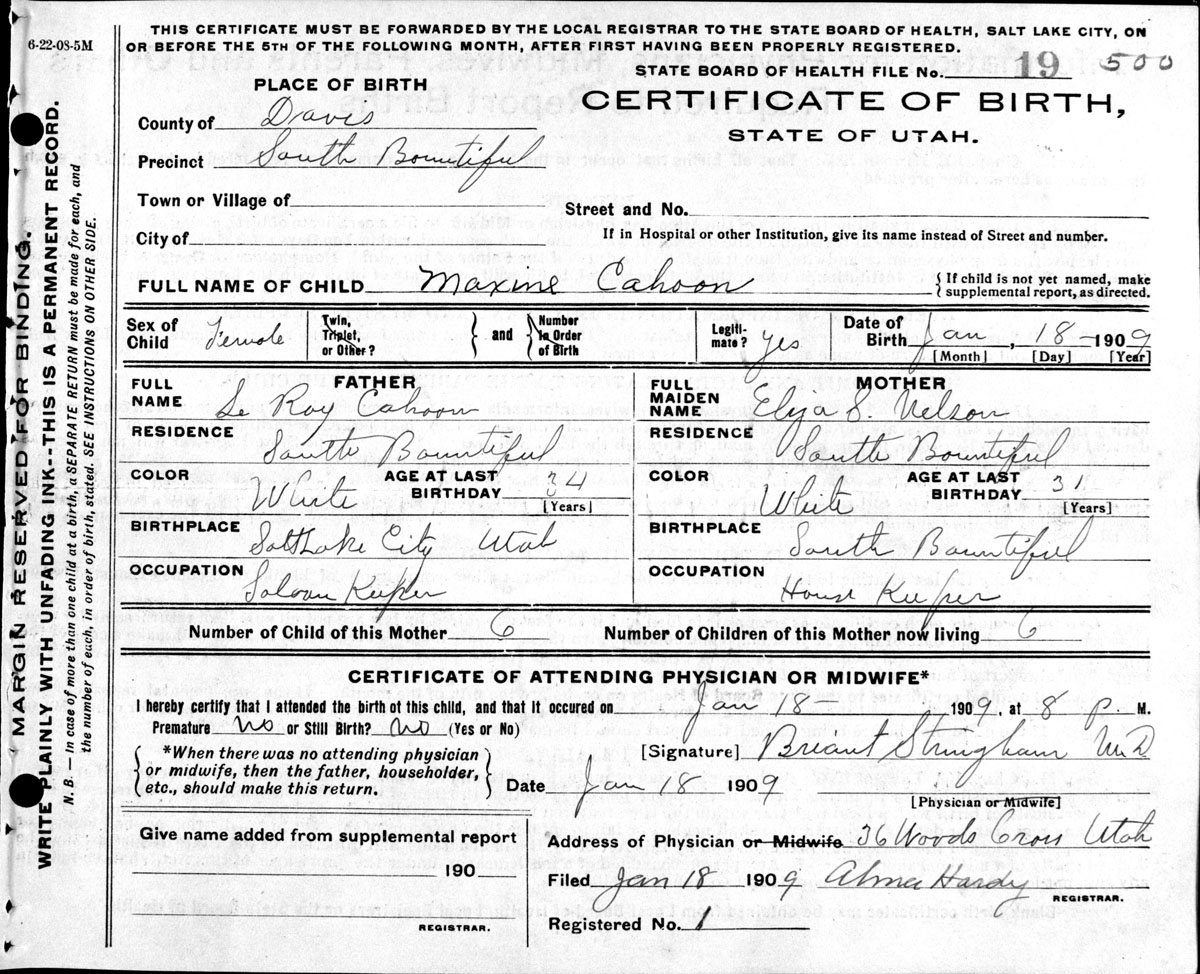 THIS CERTIFICATE MUST BE FORWARDED BY THE LOCAL REGISTRAR TO THE STATE BOARD OF HEALTH, SALT LAKE CITY, ON
OR BEFORE THE 5TH OF THE FOLLOWING MONTH, AFTER FIRST HAVING BEEN PROPERLY REGISTERED.
6-22-08-5M
STATE BOARD OF HEALTH FILE No. 19 500
PLACE OF BIRTH
CERTIFICATE OF BIRTH,
STATE OF UTAH.
County of Davis
Precinct South Bountiful
Town or Village of
Street and No.
City of
If in Hospital or other Institution, give its name instead of Street and number.
FULL NAME OF CHILD Maxine Cahoon
{ If child is not yet named, make
supplemental report, as directed.
Sex of Child Female
Twin, Triplet, or Other? } and { Number in Order of Birth
Legiti-mate? yes
Date of Birth Jan, 18 - 1909
[Month] [Day] [Year]
FATHER
FULL NAME Le Roy Cahoon
RESIDENCE South Bountiful
COLOR White AGE AT LAST BIRTHDAY 34 [Years]
BIRTHPLACE Salt Lake City Utah
OCCUPATION Saloon Keeper
MOTHER
FULL MAIDEN NAME Elya S. Nelson
RESIDENCE South Bountiful
COLOR White AGE AT LAST BIRTHDAY 31 [Years]
BIRTHPLACE South Bountiful
OCCUPATION House Keeper
Number of Child of this Mother 6 Number of Children of this Mother now living 6
CERTIFICATE OF ATTENDING PHYSICIAN OR MIDWIFE*
I hereby certify that I attended the birth of this child, and that it occured on Jan 18 - 1909, at 8 P. M.
Premature No or Still Birth? No (Yes or No)
{ *When there was no attending physician
or midwife, then the father, householder,
etc., should make this return. }
[Signature] Briant Stringham M D
Date Jan 18 1909
[Physician or Midwife]
Give name added from supplemental report
190
REGISTRAR.
Address of Physician or Midwife 36 Woods Cross Utah
Filed Jan 18 1909 Alma Hardy
REGISTRAR.
Registered No. 1
MARGIN RESERVED FOR BINDING.
WRITE PLAINLY WITH UNFADING INK--THIS IS A PERMANENT RECORD.
N. B.—In case of more than one child at a birth, a SEPARATE RETURN must be made for each, and
the number of each, in order of birth, stated. SEE INSTRUCTIONS ON OTHER SIDE.